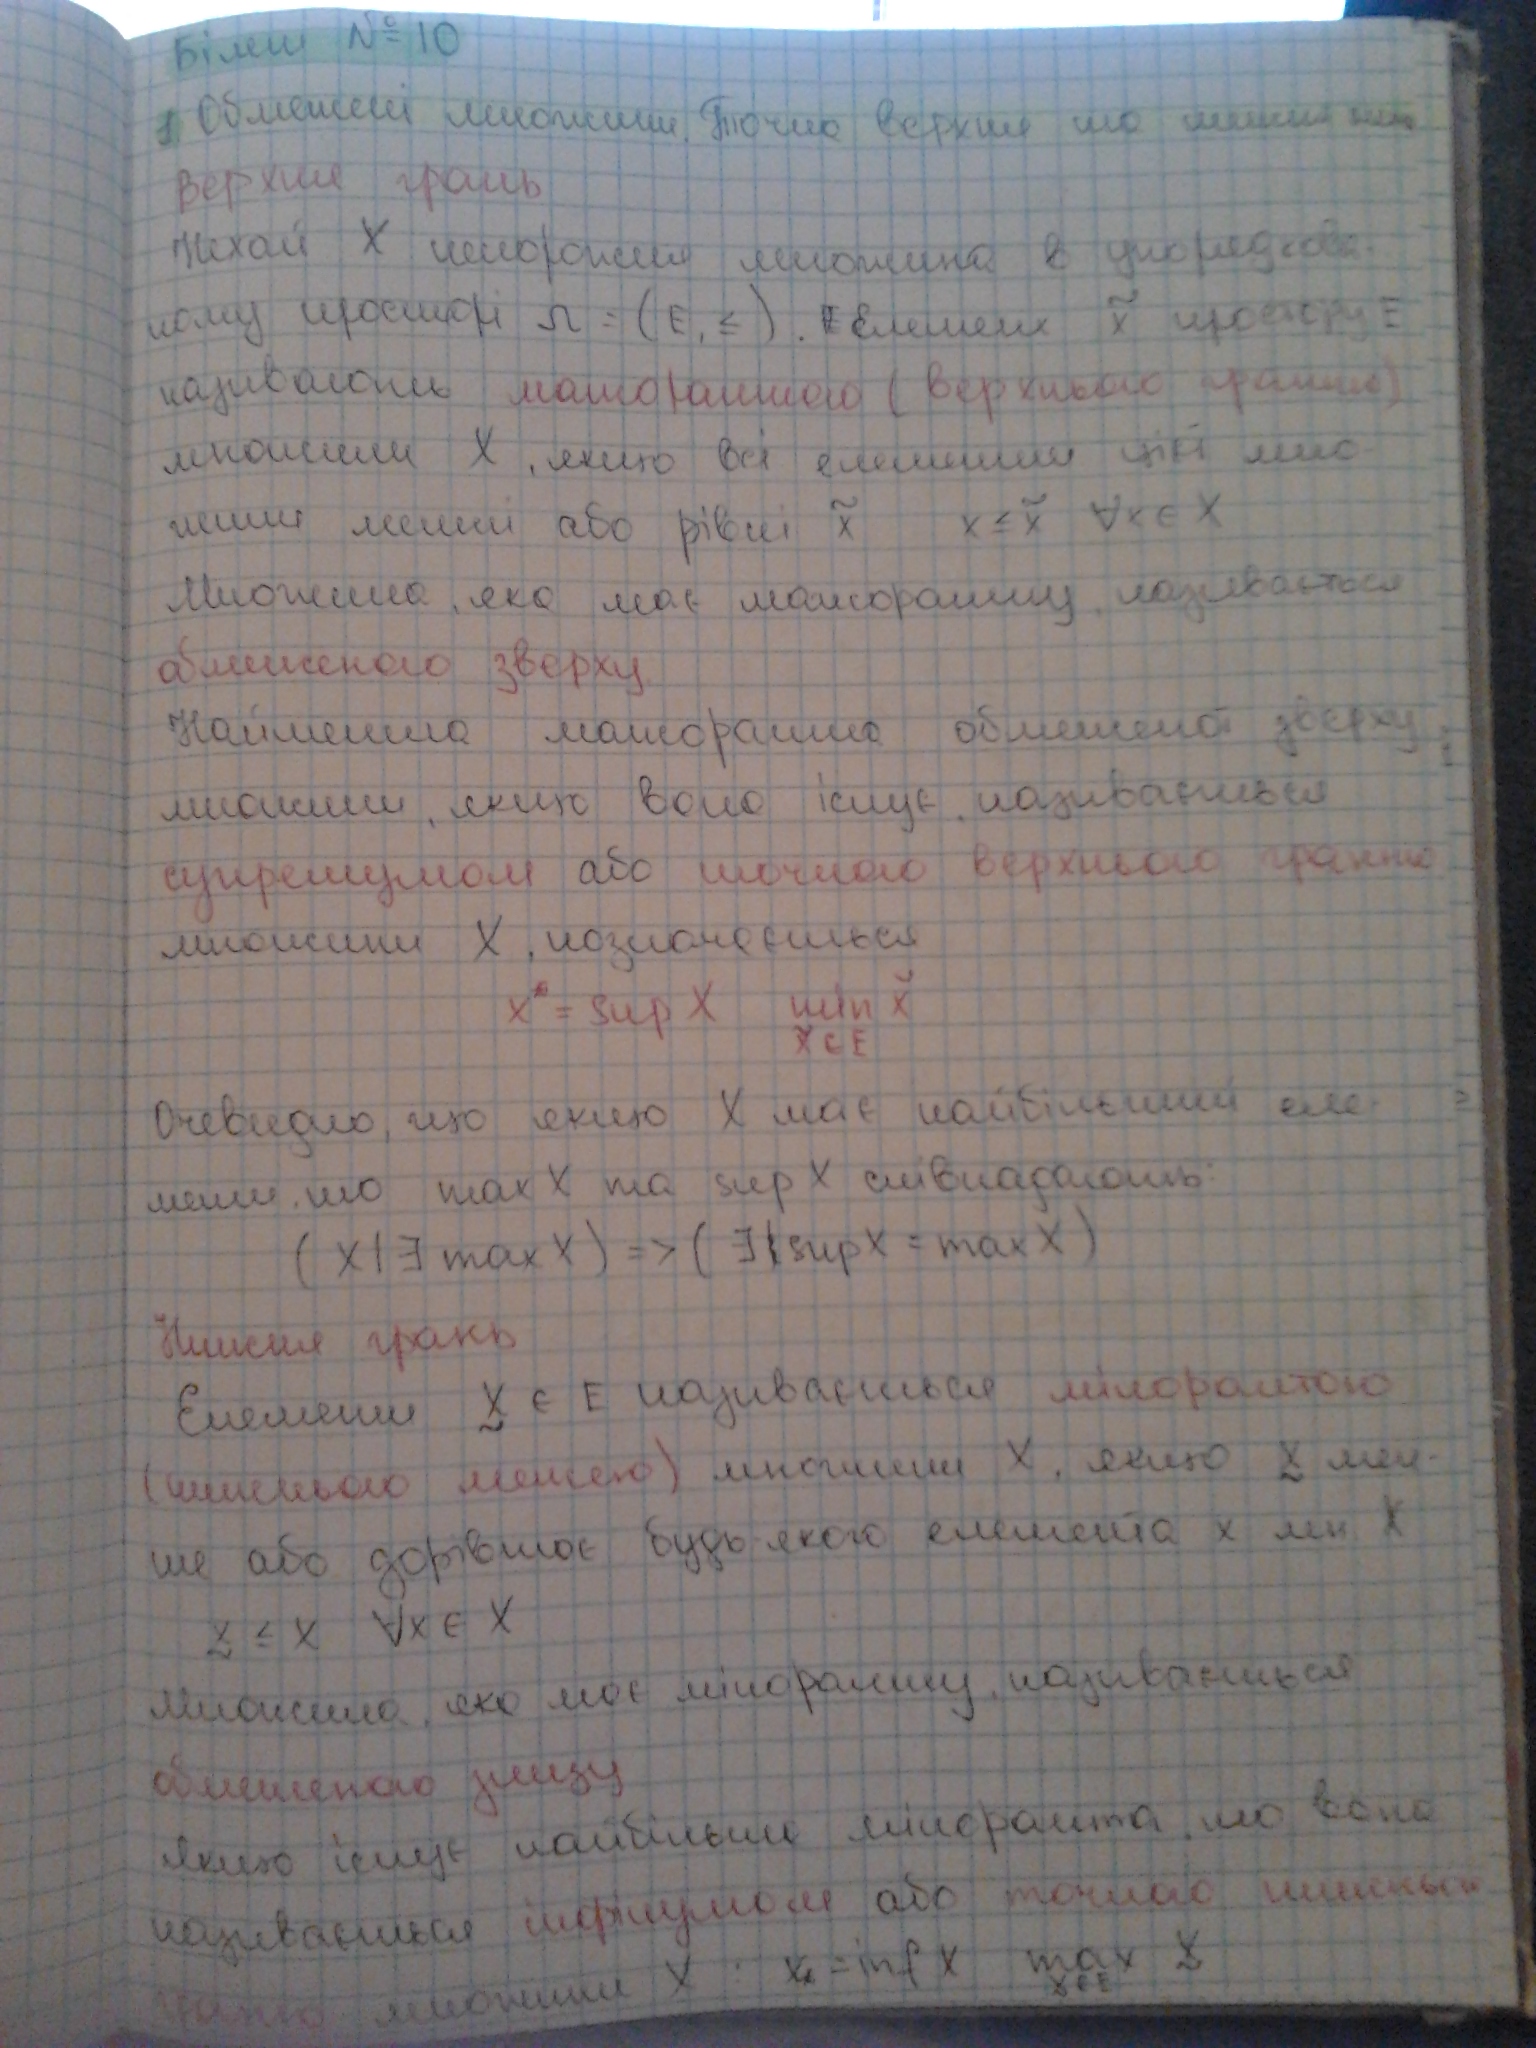 Білет № 10
1 Обмежені множини. Точна верхня та нижня
Верхня грань
Нехай X непорожня множина в упорядкова-
ному просторі Ω = (E, ≤). Елемент x̃ простору E
називають мажорантою (верхньою гранню)
множини X, якщо всі елементи цієї мно-
жини менші або рівні x̃ x ≤ x̃ ∀x ∈ X
Множина, яка має мажоранту, називається
обмеженою зверху
Найменша мажоранта обмеженої зверху
множини, якщо вона існує, називається
супремумом або точною верхньою гранню
множини X, позначається
x* = sup X min x̃
x̃ ∈ E
Очевидно, що якщо X має найбільший еле-
мент, то max X та sup X співпадають:
(X | ∃ max X) => (∃ sup X = max X)
Нижня грань
Елемент x̰ ∈ E називається мінорантою
(нижньою межею) множини X, якщо x̰ мен-
ше або дорівнює будь-якого елемента x мн. X
x̰ ≤ x ∀x ∈ X
Множина, яка має міноранту, називається
обмеженою знизу
Якщо існує найбільша міноранта, то вона
називається інфімумом або точною нижньою
гранню множини X x* = inf X max x̰
x̰ ∈ E